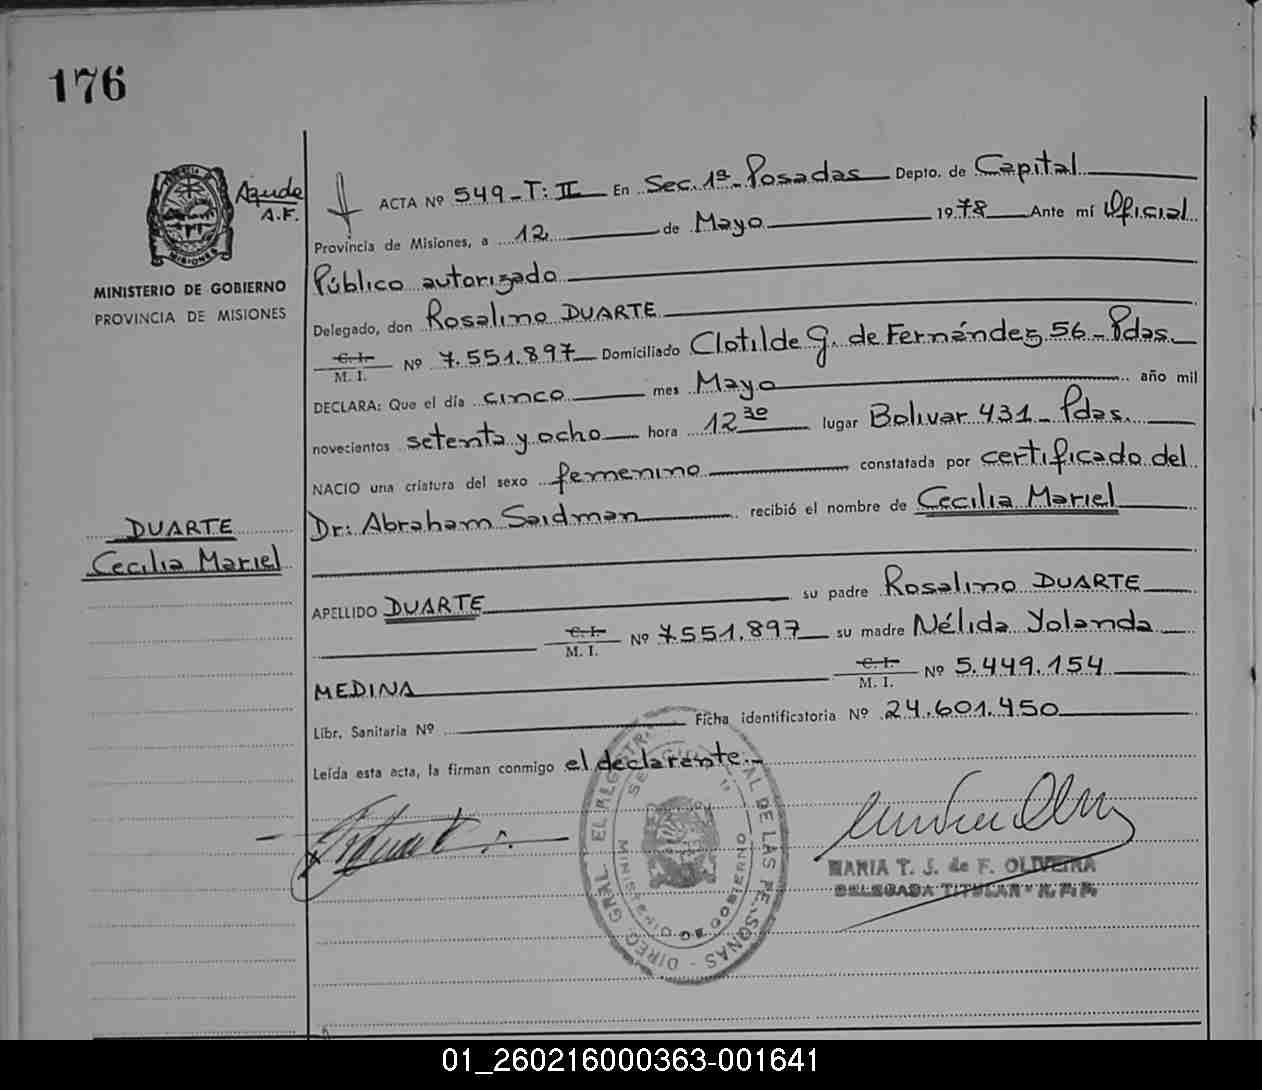 176
Ayude
A.F.
MISIONES
MINISTERIO DE GOBIERNO
PROVINCIA DE MISIONES
DUARTE
Cecilia Mariel
ACTA Nº 549-T: II En Sec. 1ª- Posadas Depto. de Capital
Provincia de Misiones, a 12 de Mayo 1978 Ante mí Oficial
Público autorizado
Delegado, don Rosalino DUARTE
C. I. M. I. Nº 7.551.897 Domiciliado Clotilde G. de Fernández 56-Pdas.
DECLARA: Que el día cinco mes Mayo año mil
novecientos setenta y ocho hora 12 30 lugar Bolivar 431-Pdas.
NACIO una criatura del sexo femenino constatada por certificado del
Dr: Abraham Saidman recibió el nombre de Cecilia Mariel
APELLIDO DUARTE su padre Rosalino DUARTE
C. I. M. I. Nº 7.551.897 su madre Nélida Yolanda
MEDINA C. I. M. I. Nº 5.449.154
Libr. Sanitaria Nº Ficha identificatoria Nº 24.601.450
Leída esta acta, la firman conmigo el declarante.-
DIREC. GRAL. EL REGISTR AL DE LAS PERSONAS
MINISTERIO DE GOBIERNO
MARIA T. J. de F. OLIVEIRA
DELEGADA TITULAR
01_260216000363-001641